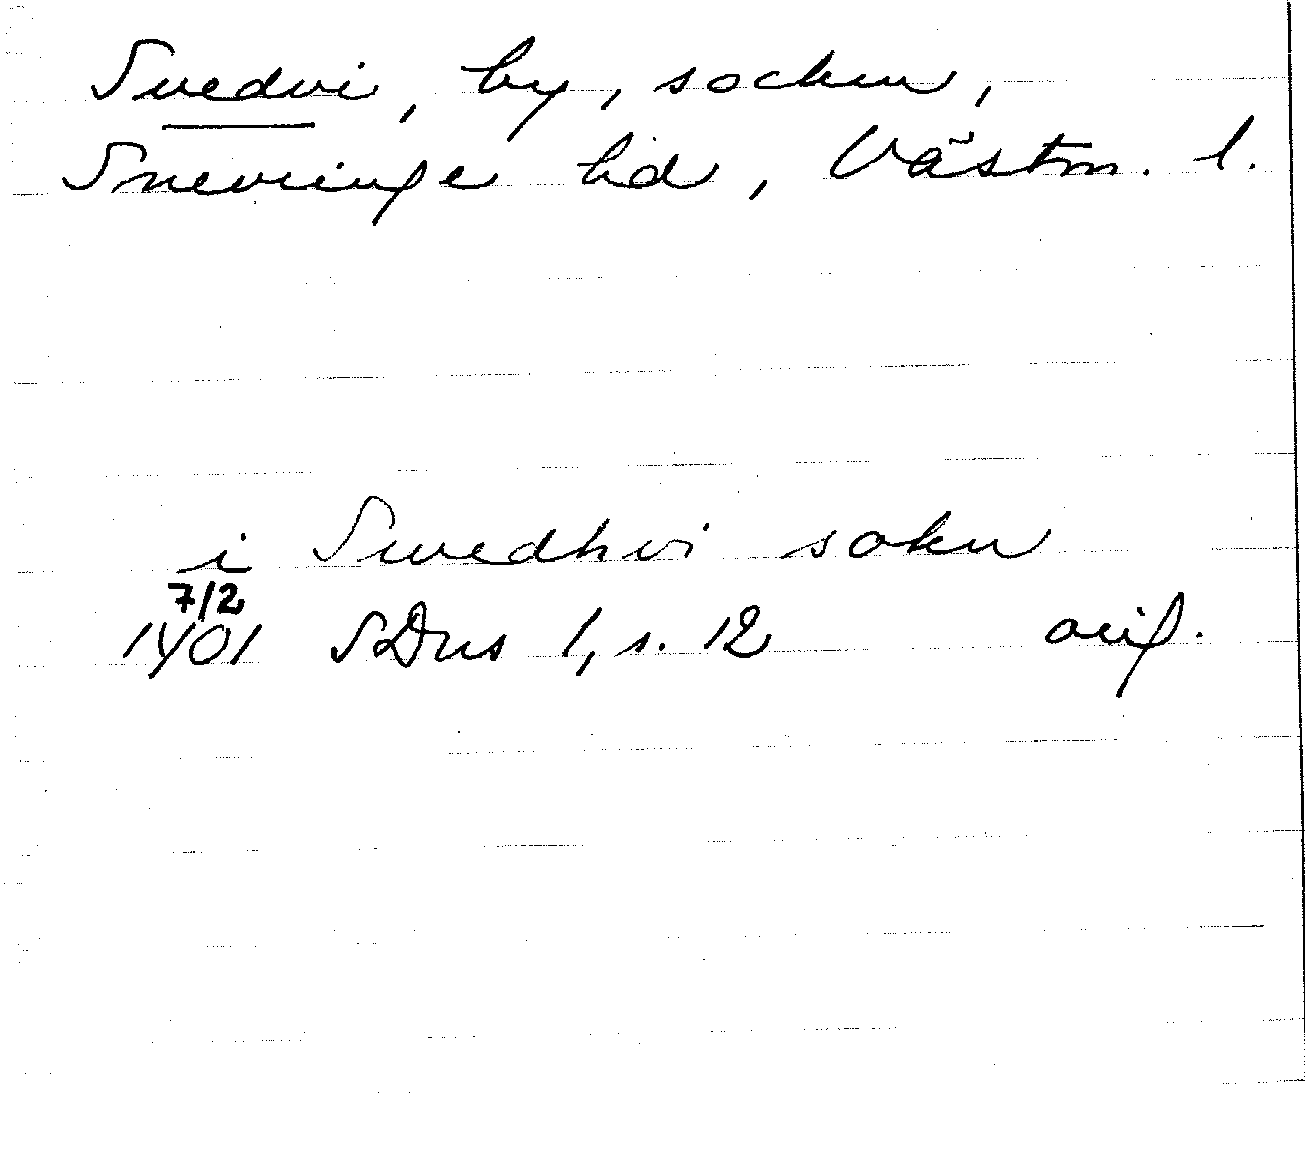 Svedvi, by, socken,
Snevringe hd, Västm. l.
i Swedhvi sokn
7/2
1401 SDns 1, s. 12 orig.